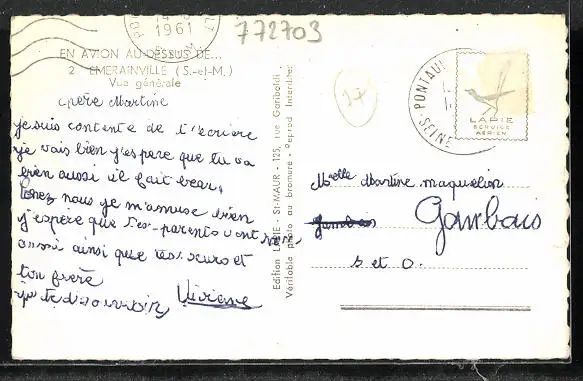 772703
1961
EN AVION AU-DESSUS DE...
2. EMERAINVILLE (S.-et-M.)
Vue générale
chère Martine
je suis contente de t'ecriere
je vais bien j'espere que tu va
bien aussi il fait beau,
chez nous je m'amuse bien
j'espère que tes parents vont bien
aussi ainsi que tes seurs et
ton frère
je te dis au revoir
Viviane
Edition LAPIE - St-MAUR - 125, rue Garibaldi
Véritable photo au bromure - Reprod. Interdite
17
PONTAU
-SEINE
LAPIE
SERVICE
AERIEN
Melle Martine maquelin
Gambais
S et O.